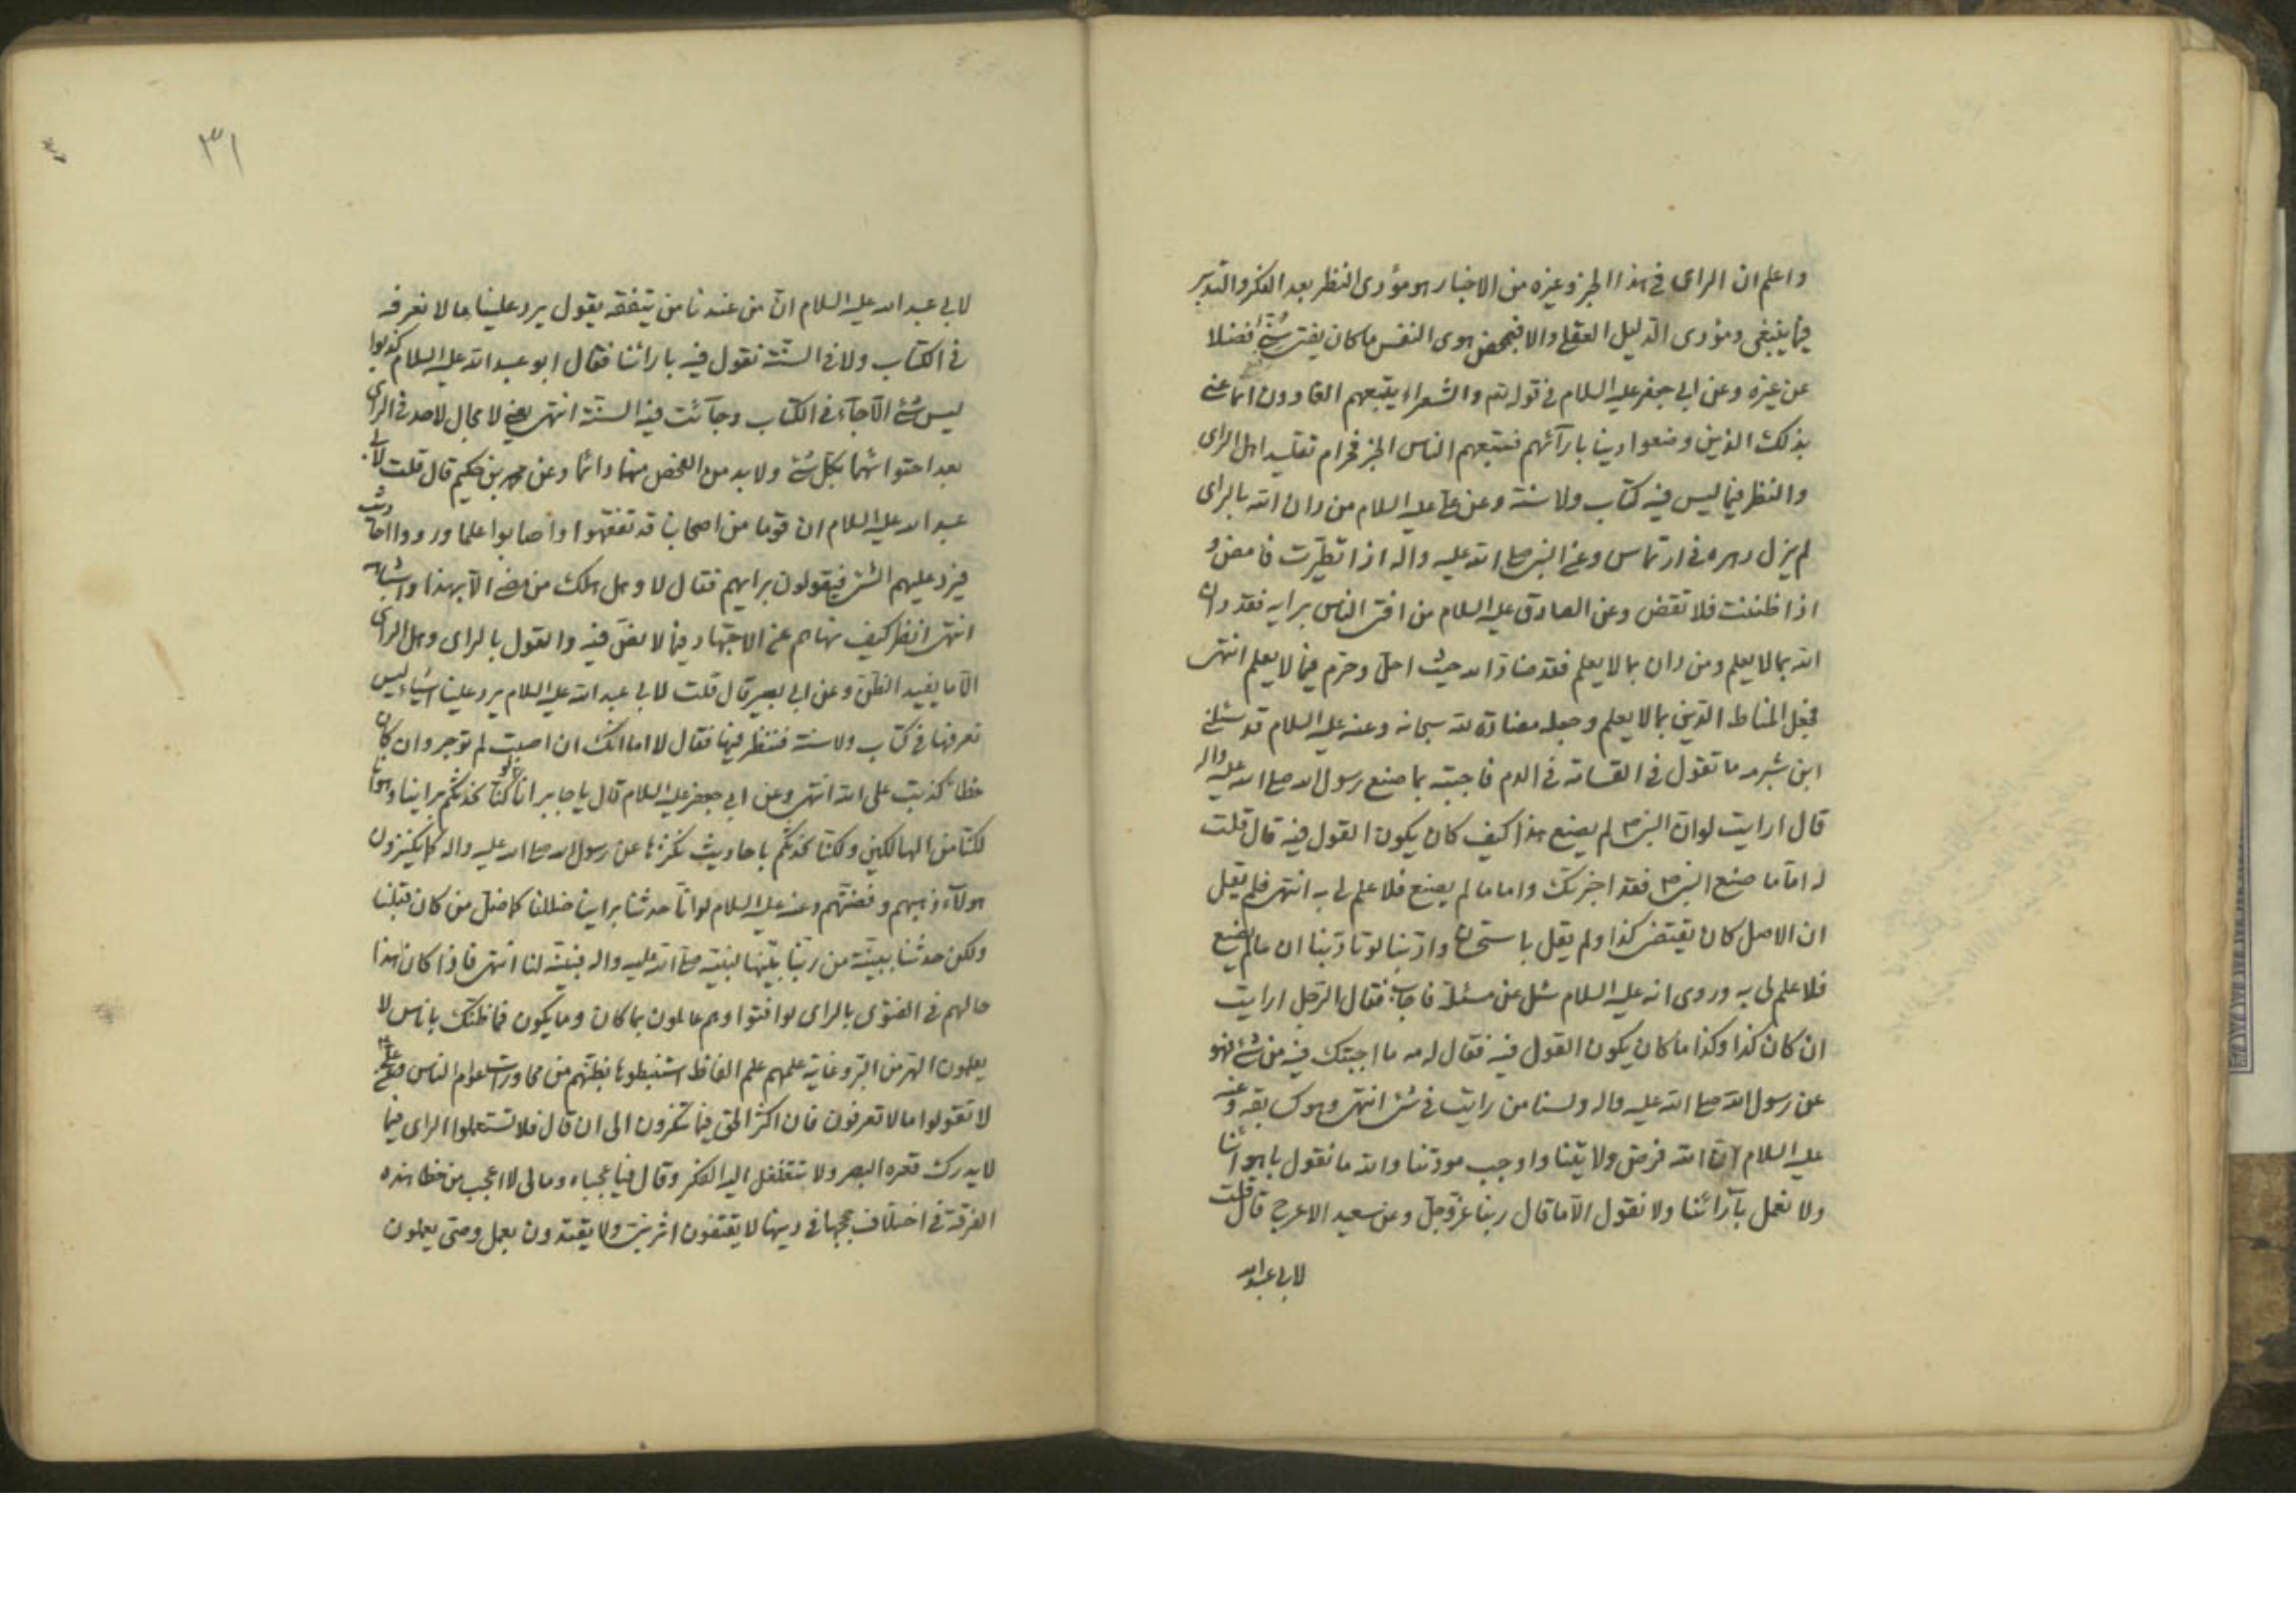 واعلم ان الراى فى هذا الخبر وغيره من الاخبار هو مؤدى النظر بعد الفكر والتدبر
فيما ينبغى ومؤدى الدليل العقلى والا فبمحض هوى النفس ما كان يفتى سنى فضلا
عن غيره وعن ابى جعفر عليه السلام فى قوله تع والشعراء يتبعهم الغاوون انما عنى
بذلك الذين وضعوا دينا بارآئهم فتتبعهم الناس الخبر فحرام تقليد اهل الراى
والنظر فيما ليس فيه كتاب ولا سنة وعن على عليه السلام من دان الله بالراى
لم يزل دهره فى ارتماس وعن النبى صلى الله عليه واله اذا تطيرت فامض و
اذا ظننت فلا تقض وعن الصادق عليه السلام من افتى الناس برايه فقد دان
الله بما لا يعلم ومن دان بما لا يعلم فقد ضاد الله حيث احل وحرم فيما لا يعلم انتهى
فجعل المناط التدين بما لا يعلم وجعله مضادة لله سبحانه وعنه عليه السلام قد سئلنى
ابن شبرمه ما تقول فى القسامة فى الدم فاجبته بما صنع رسول الله صلى الله عليه واله
قال ارايت لو ان النبى ص لم يصنع هذا كيف كان يكون القول فيه قال قلت
له اما ما صنع النبى ص فقد اخبرتك واما ما لم يصنع فلا علم لى به انتهى فلم يقل
ان الاصل كان يقتضى كذا ولم يقل باستحسان وادبنا لو تادبنا ان ما لم يصنع
فلا علم لى به وروى انه عليه السلام سئل عن مسئلة فاجاب فقال الرجل ارايت
ان كان كذا وكذا ما كان يكون القول فيه فقال له مه ما اجبتك فيه من شئ فهو
عن رسول الله صلى الله عليه واله ولسنا من رايت فى شئ انتهى وهو كسابقه وعنه
عليه السلام ان الله فرض ولايتنا واوجب مودتنا والله ما نقول باهوائنا
ولا نعمل بآرائنا ولا نقول الا ما قال ربنا عز وجل وعن سعيد الاعرج قال قلت
لابى عبد الله
٣١
لابى عبد الله عليه السلام ان من عندنا من يتفقه يقول يرد علينا ما لا نعرفه
فى الكتاب ولا فى السنة نقول فيه بارائنا فقال ابو عبد الله عليه السلام كذبوا
ليس شئ الا جآء فى الكتاب وجآئت فيه السنة انتهى يعنى لا مجال لاحد فى الراى
بعد احتوائهما بكل شئ ولا بد من الفحص منها دائما وعن محمد بن حكيم قال قلت لابى
عبد الله عليه السلام ان قوما من اصحابنا قد تفقهوا واصابوا علما ورووا احاديث
فيرد عليهم الشئ فيقولون برايهم فقال لا وهل هلك من مضى الا بهذا واشباهه
انتهى انظر كيف نهاهم عن الاجتهاد فيما لا نص فيه والقول بالراى وهل الراى
الا ما يفيد الظن وعن ابى بصير قال قلت لابى عبد الله عليه السلام يرد علينا اشياء ليس
نعرفها فى كتاب ولا سنة فننظر فيها فقال لا اما انك ان اصبت لم توجر وان كان
خطاء كذبت على الله انتهى وعن ابى جعفر عليه السلام قال يا جابر انا لو كنا نحدثكم براينا وهوانا
لكنا من الهالكين ولكنا نحدثكم باحاديث نكنزها عن رسول الله صلى الله عليه واله كما يكنزون
هولآء ذهبهم وفضتهم وعنه عليه السلام لو انا حدثنا براينا ضللنا كما ضل من كان قبلنا
ولكن حدثنا ببينة من ربنا بينها لنبيه صلى الله عليه واله فبينه لنا انتهى فاذا كان هذا
حالهم فى الفتوى بالراى لو افتوا وهم عالمون بما كان وما يكون فما ظنك باناس لا
يعلمون الهر من البر وغاية علمهم علم الفاظ استنبطوها بظنهم من محاورات العوام الناس فعن على ع
لا تقولوا ما لا تعرفون فان اكثر الحق فيما تنكرون الى ان قال فلا تستعملوا الراى فيما
لا يدرك قعره البصر ولا يتغلغل اليه الفكر وقال فيا عجباه ومالى لا اعجب من خطاء هذه
الفرقة فى اختلاف حججها فى دينها لا يقتفون اثر نبى ولا يقتدون بعمل وصى يعملون